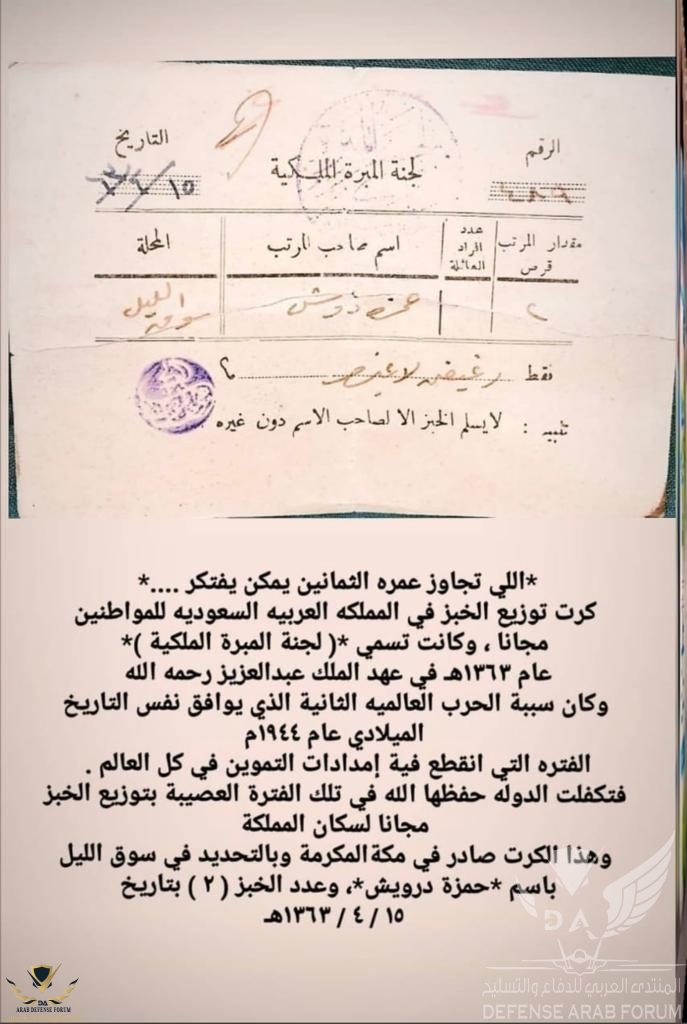 الرقم
التاريخ
لجنة المبرة الملكية
١٥
مقدار المرتب
قرص
عدد
افراد
العائلة
اسم صاحب المرتب
المحلة
٢
حمزة دروش
سوق
الليل
فقط رغيفين لا غير
تنبيه : لا يسلم الخبز الا لصاحب الاسم دون غيره
*اللي تجاوز عمره الثمانين يمكن يفتكر ....*
كرت توزيع الخبز في المملكه العربيه السعوديه للمواطنين
مجانا ، وكانت تسمي *( لجنة المبرة الملكية )*
عام ١٣٦٣هـ في عهد الملك عبدالعزيز رحمه الله
وكان سببة الحرب العالميه الثانية الذي يوافق نفس التاريخ
الميلادي عام ١٩٤٤م
الفتره التي انقطع فية إمدادات التموين في كل العالم .
فتكفلت الدوله حفظها الله في تلك الفترة العصيبة بتوزيع الخبز
مجانا لسكان المملكة
وهذا الكرت صادر في مكة المكرمة وبالتحديد في سوق الليل
باسم *حمزة درويش*، وعدد الخبز ( ٢ ) بتاريخ
١٥ / ٤ / ١٣٦٣هـ
DA
المنتدى العربي للدفاع والتسليح
DEFENSE ARAB FORUM
DA
ARAB DEFENSE FORUM